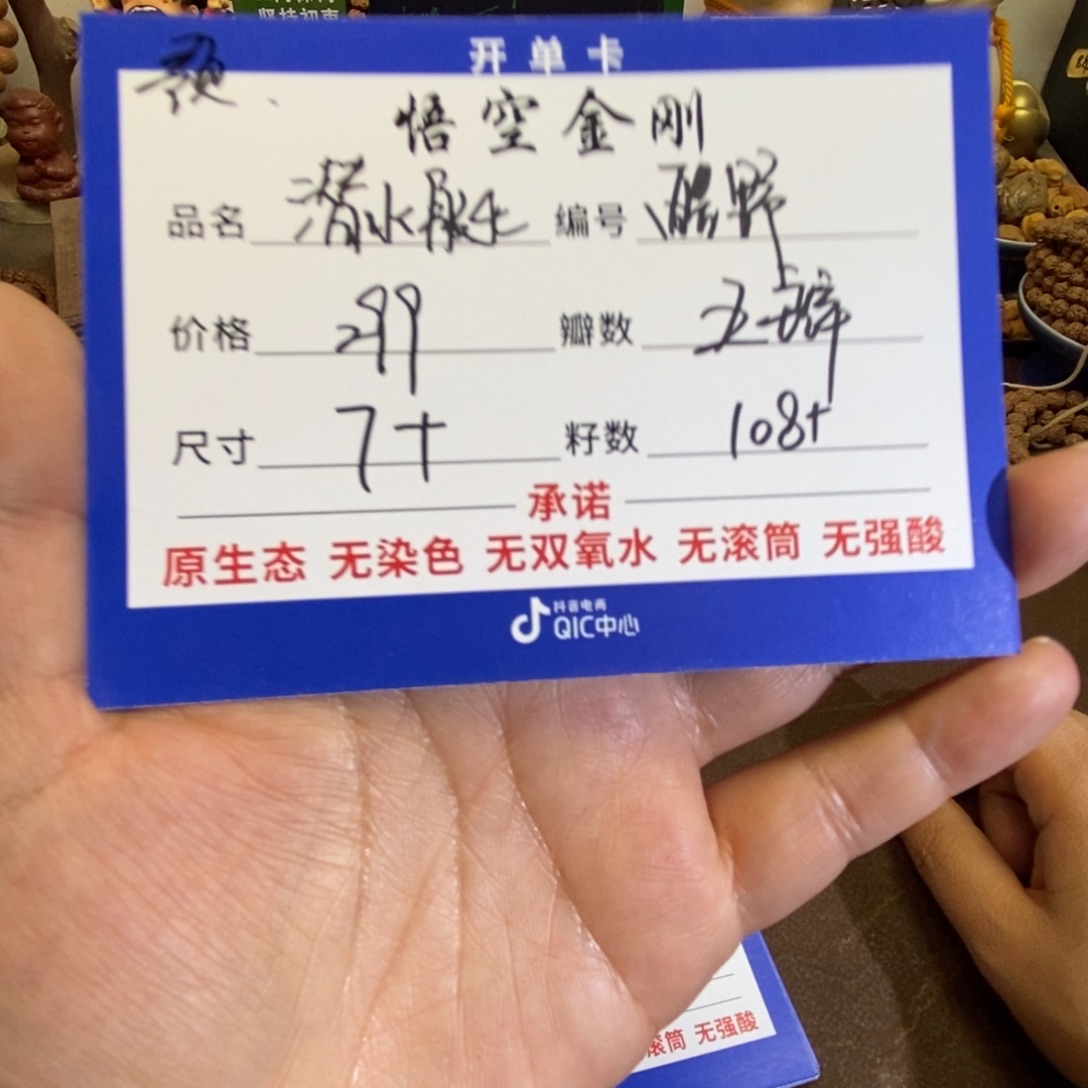 坚持初衷
开单卡
悟空金刚
品名 潜水艇 编号 酷野
价格 299 瓣数 五瓣
尺寸 7+ 籽数 108+
承诺
原生态 无染色 无双氧水 无滚筒 无强酸
抖音电商
QIC中心
滚筒 无强酸